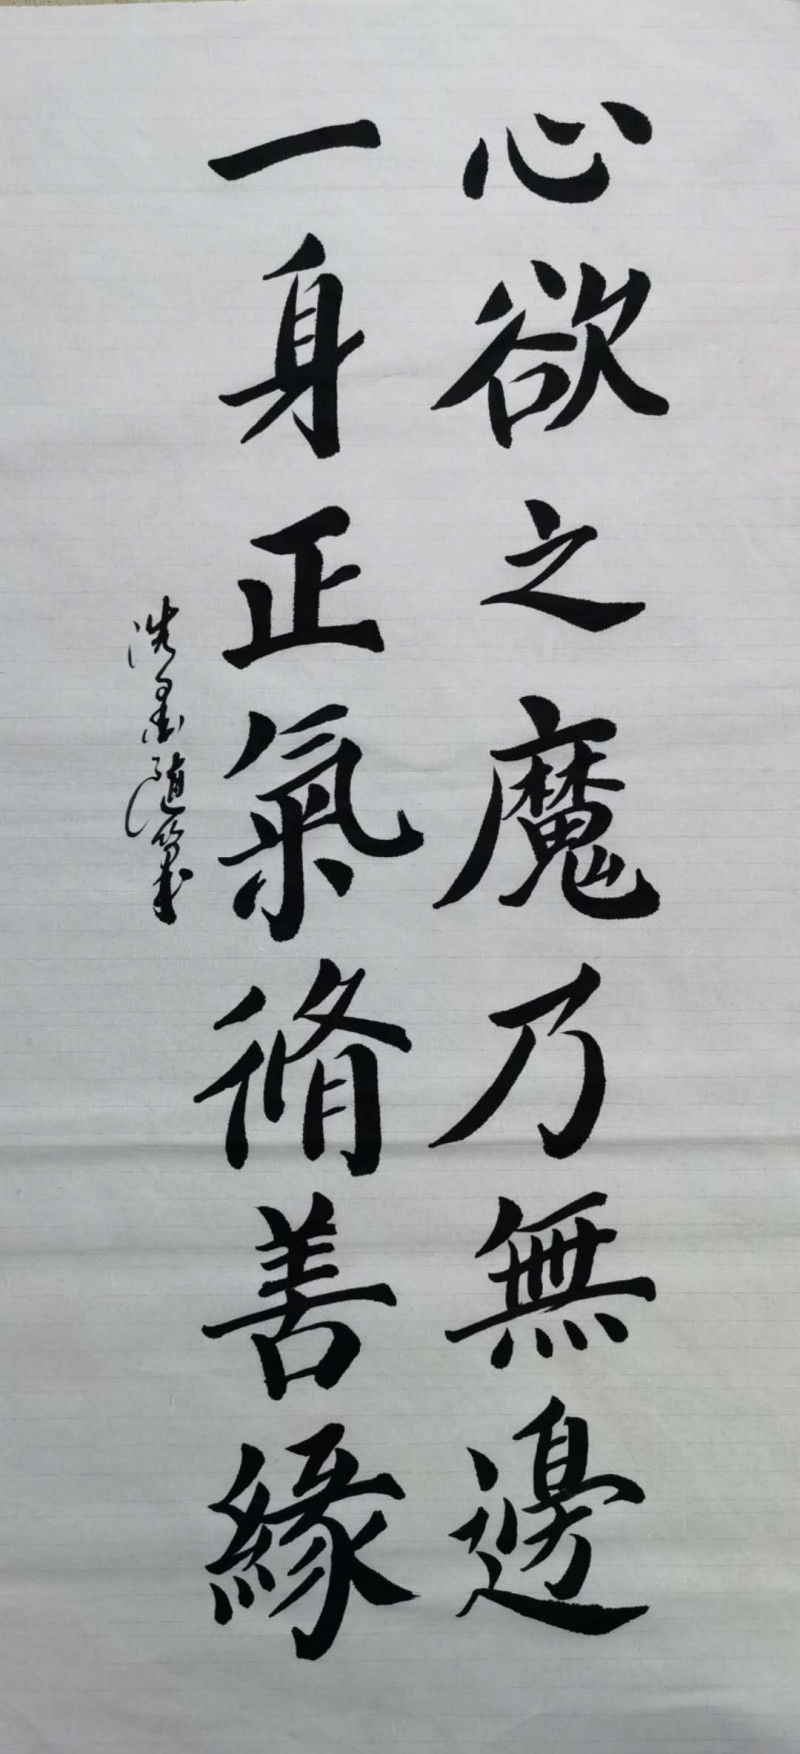 心欲之魔乃無邊
一身正氣脩善緣
随筆